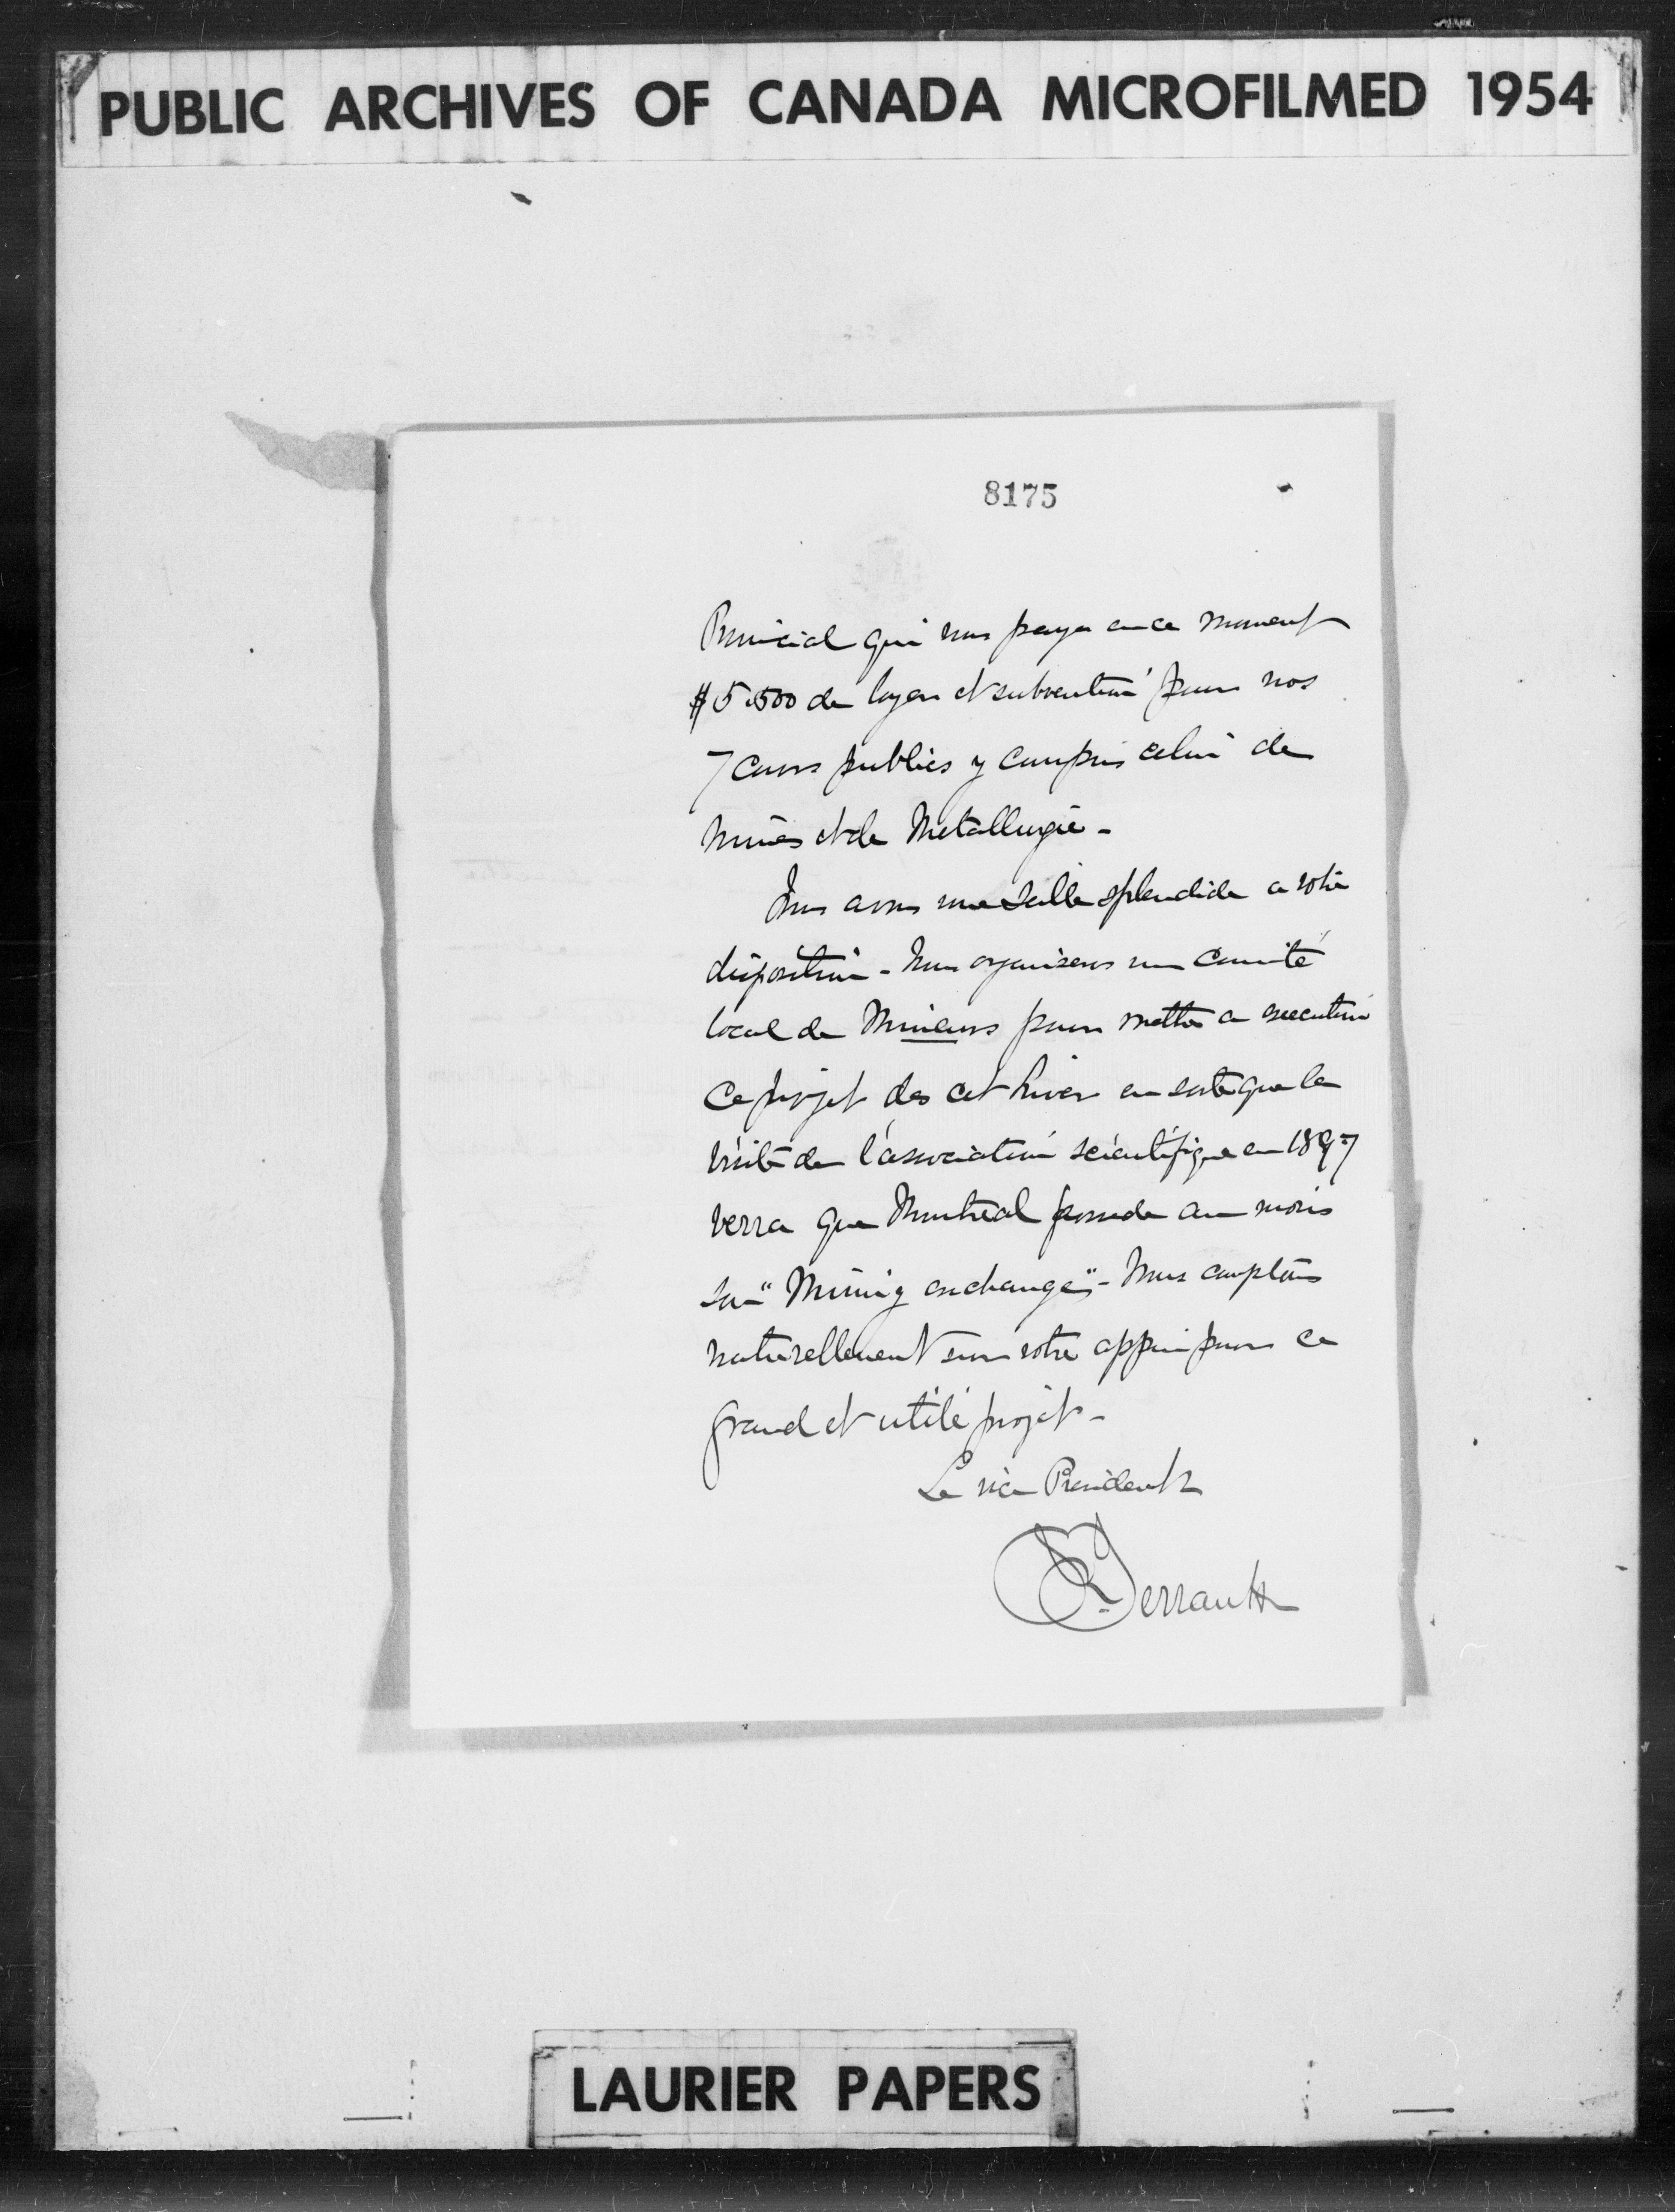 PUBLIC ARCHIVES OF CANADA MICROFILMED 1954
8175
Provincial qui nous paye en ce moment
$5.500 de loyer et subvention pour nos
7 cours publics y compris celui de
Mines et de Metallurgie -
Nous avons une salle splendide a votre
disposition - Nous organisons un Comité
local de Mineurs pour mettre a execution
ce projet des cet hiver en sorte que la
visite de l'association scientifique en 1897
verra que Montreal possede au mois
son "Mining exchange" - Nous comptons
naturellement sur votre appui pour ce
grand et utile projet -
Le vice President
Perrault
LAURIER PAPERS